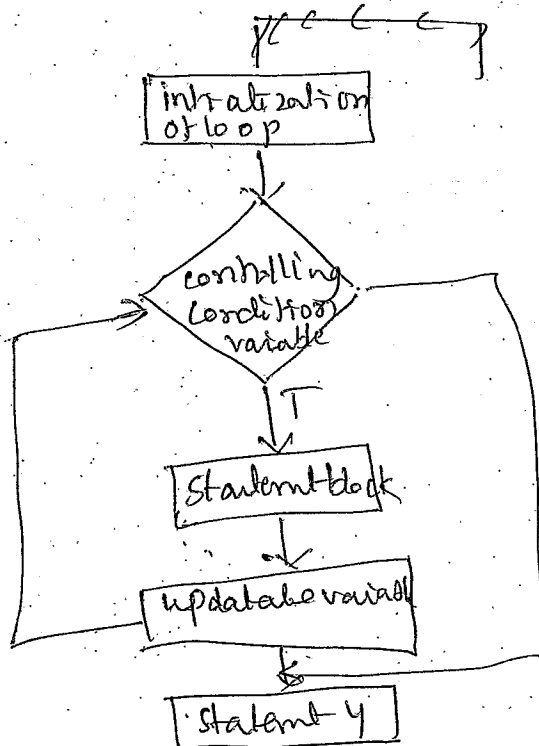 intialization
of loop
controlling
condition
variable
T
Statemt block
updatate variabl
statemt y